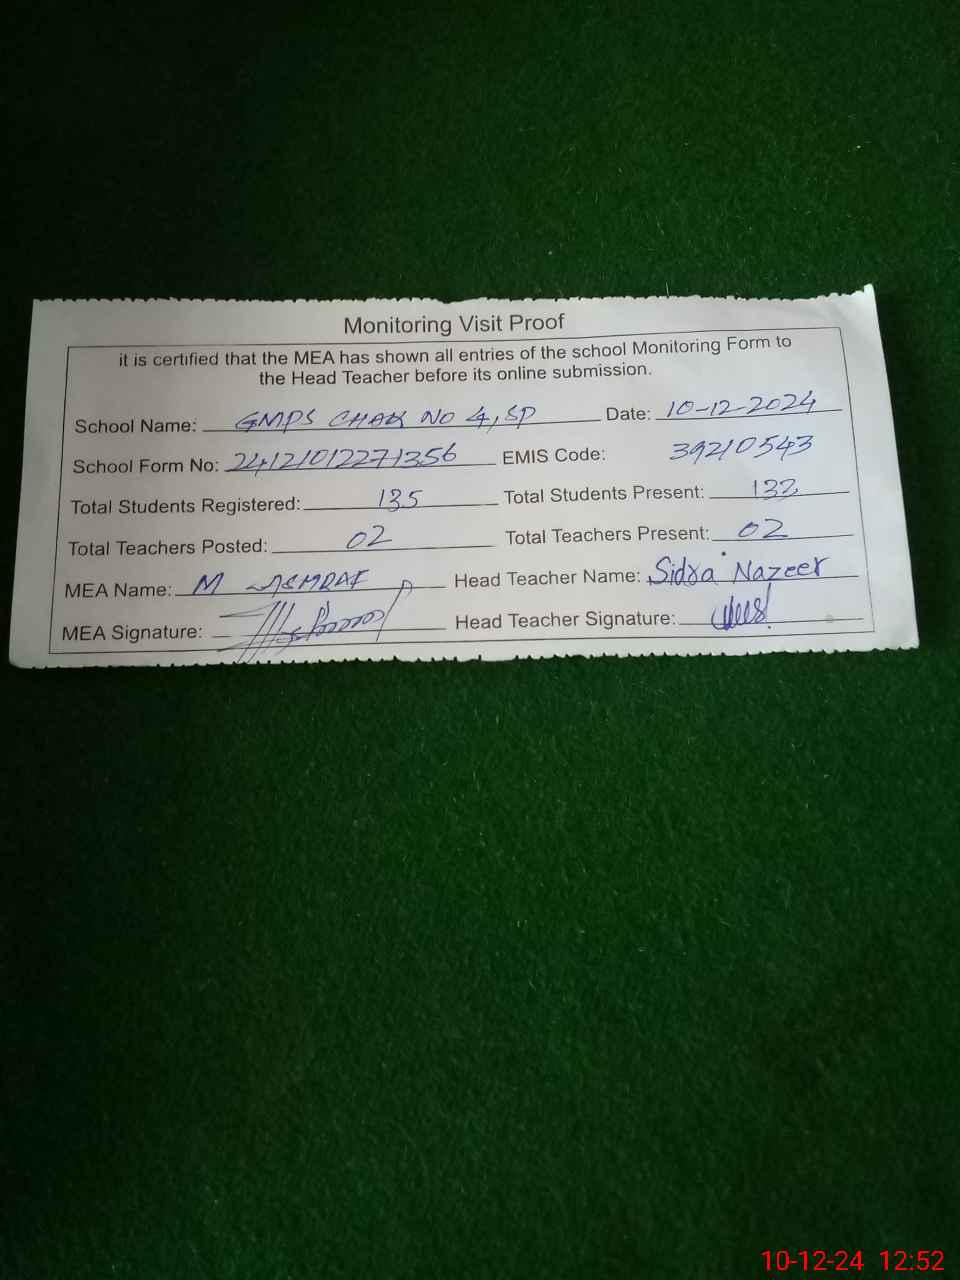 Monitoring Visit Proof
it is certified that the MEA has shown all entries of the school Monitoring Form to
the Head Teacher before its online submission.
School Name: GMPS CHAK NO 4, SP Date: 10-12-2024
School Form No: 24121012271356 EMIS Code: 39210543
Total Students Registered: 135 Total Students Present: 132
Total Teachers Posted: 02 Total Teachers Present: 02
MEA Name: M ASHRAF Head Teacher Name: Sidra Nazeer
MEA Signature: Head Teacher Signature:
10-12-24 12:52